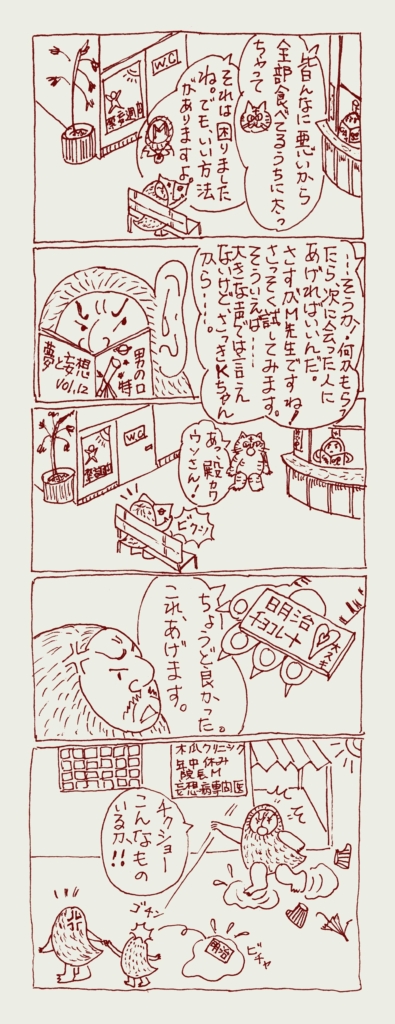 皆んなに悪いから
全部食べてるうちに太っ
ちゃって
それは困りました
ね。でも、いい方法
がありますよ。
W.C
…そうか、何かもらっ
たら次に会った人に
あげればいいんだ。
さすがM先生ですね!
さっそく試してみます。
そういえば……
大きな声では言え
ないけど、さっきKちゃん
から……。
夢と妄想
VOL.12
男の口
特
W.C
あっ、殿カワ
ウソさん!
ビクッ!
ちょうど良かった。
これ、あげます。
明治
チョコレート
大スキ
木瓜クリニック
年中休み
院長M
妄想病専門医
チクショー
こんなもの
いるか!!
ゴチン
明治
ビチャ